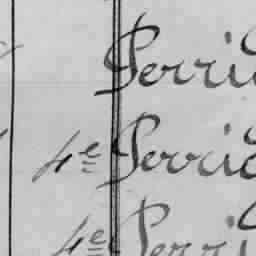 Perri
4e Perri
4e Perri